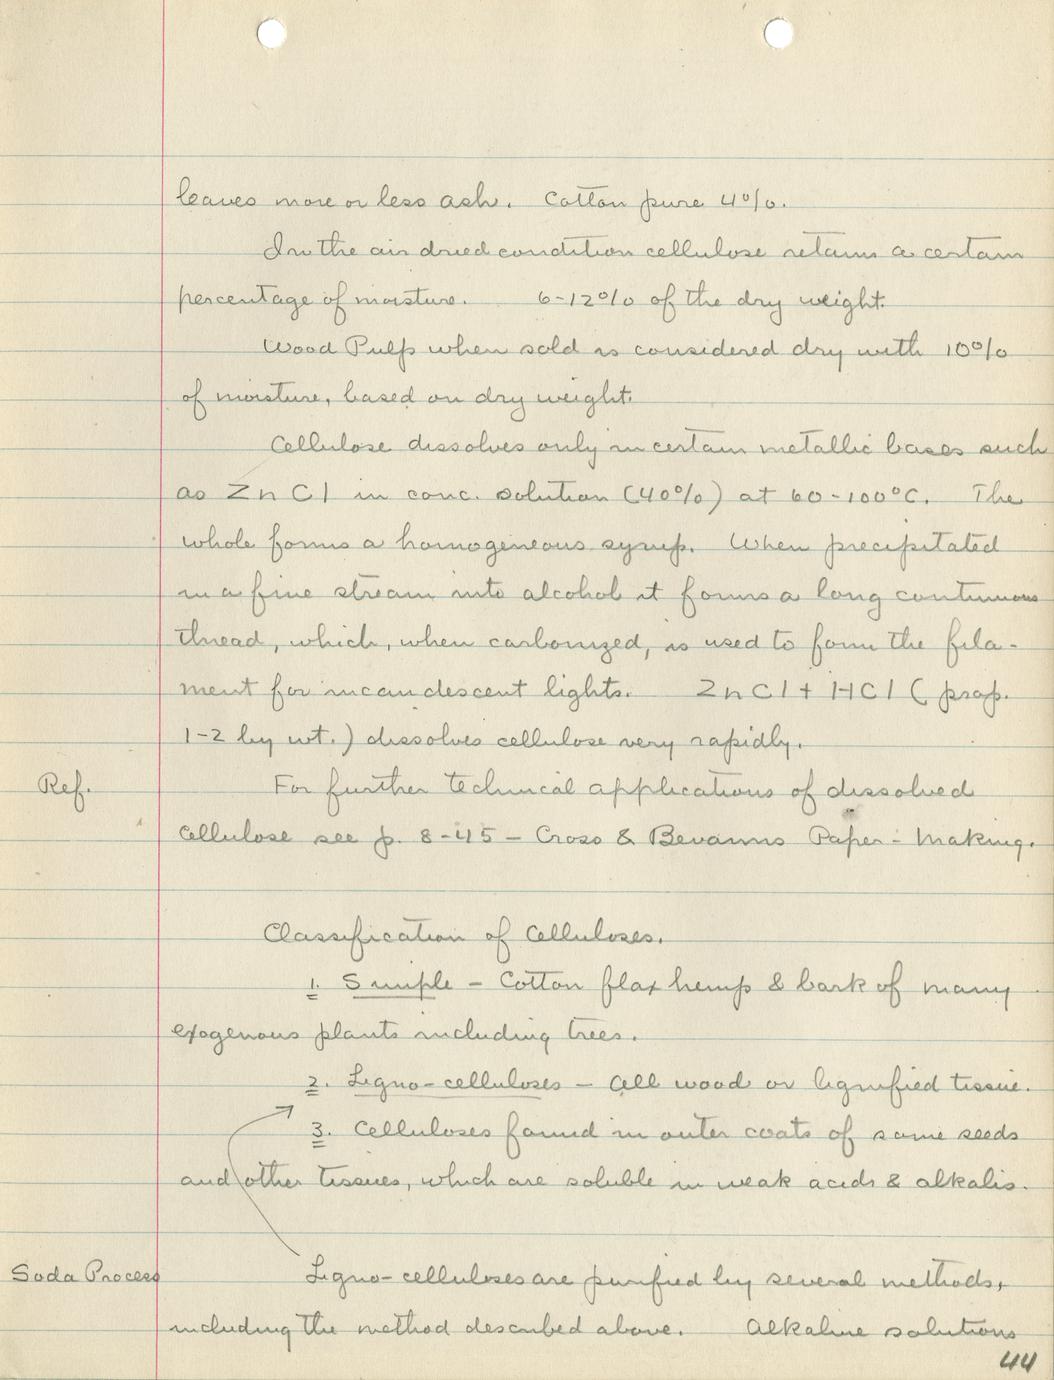 leaves more or less ash. Cotton pure 4%.
In the air dried condition cellulose retains a certain
percentage of moisture. 6-12% of the dry weight.
Wood Pulp when sold is considered dry with 10%
of moisture, based on dry weight.
Cellulose dissolves only in certain metallic bases such
as ZnCl in conc. solution (40%) at 60-100°C. The
whole forms a homogeneous syrup. When precipitated
in a fine stream into alcohol it forms a long continuous
thread, which, when carbonized, is used to form the fila-
ment for incandescent lights. ZnCl + HCl (prop.
1-2 by wt.) dissolves cellulose very rapidly.
Ref. For further technical applications of dissolved
cellulose see p. 8-45 - Cross & Bevanns Paper-Making.
Classification of Celluloses.
1. Simple - Cotton flax hemp & bark of many
exogenous plants including trees.
2. Ligno-celluloses - All wood or lignified tissue.
3. Celluloses found in outer coats of some seeds
and other tissues, which are soluble in weak acids & alkalis.
Soda Process Ligno-celluloses are purified by several methods,
including the method described above. Alkaline solutions
44